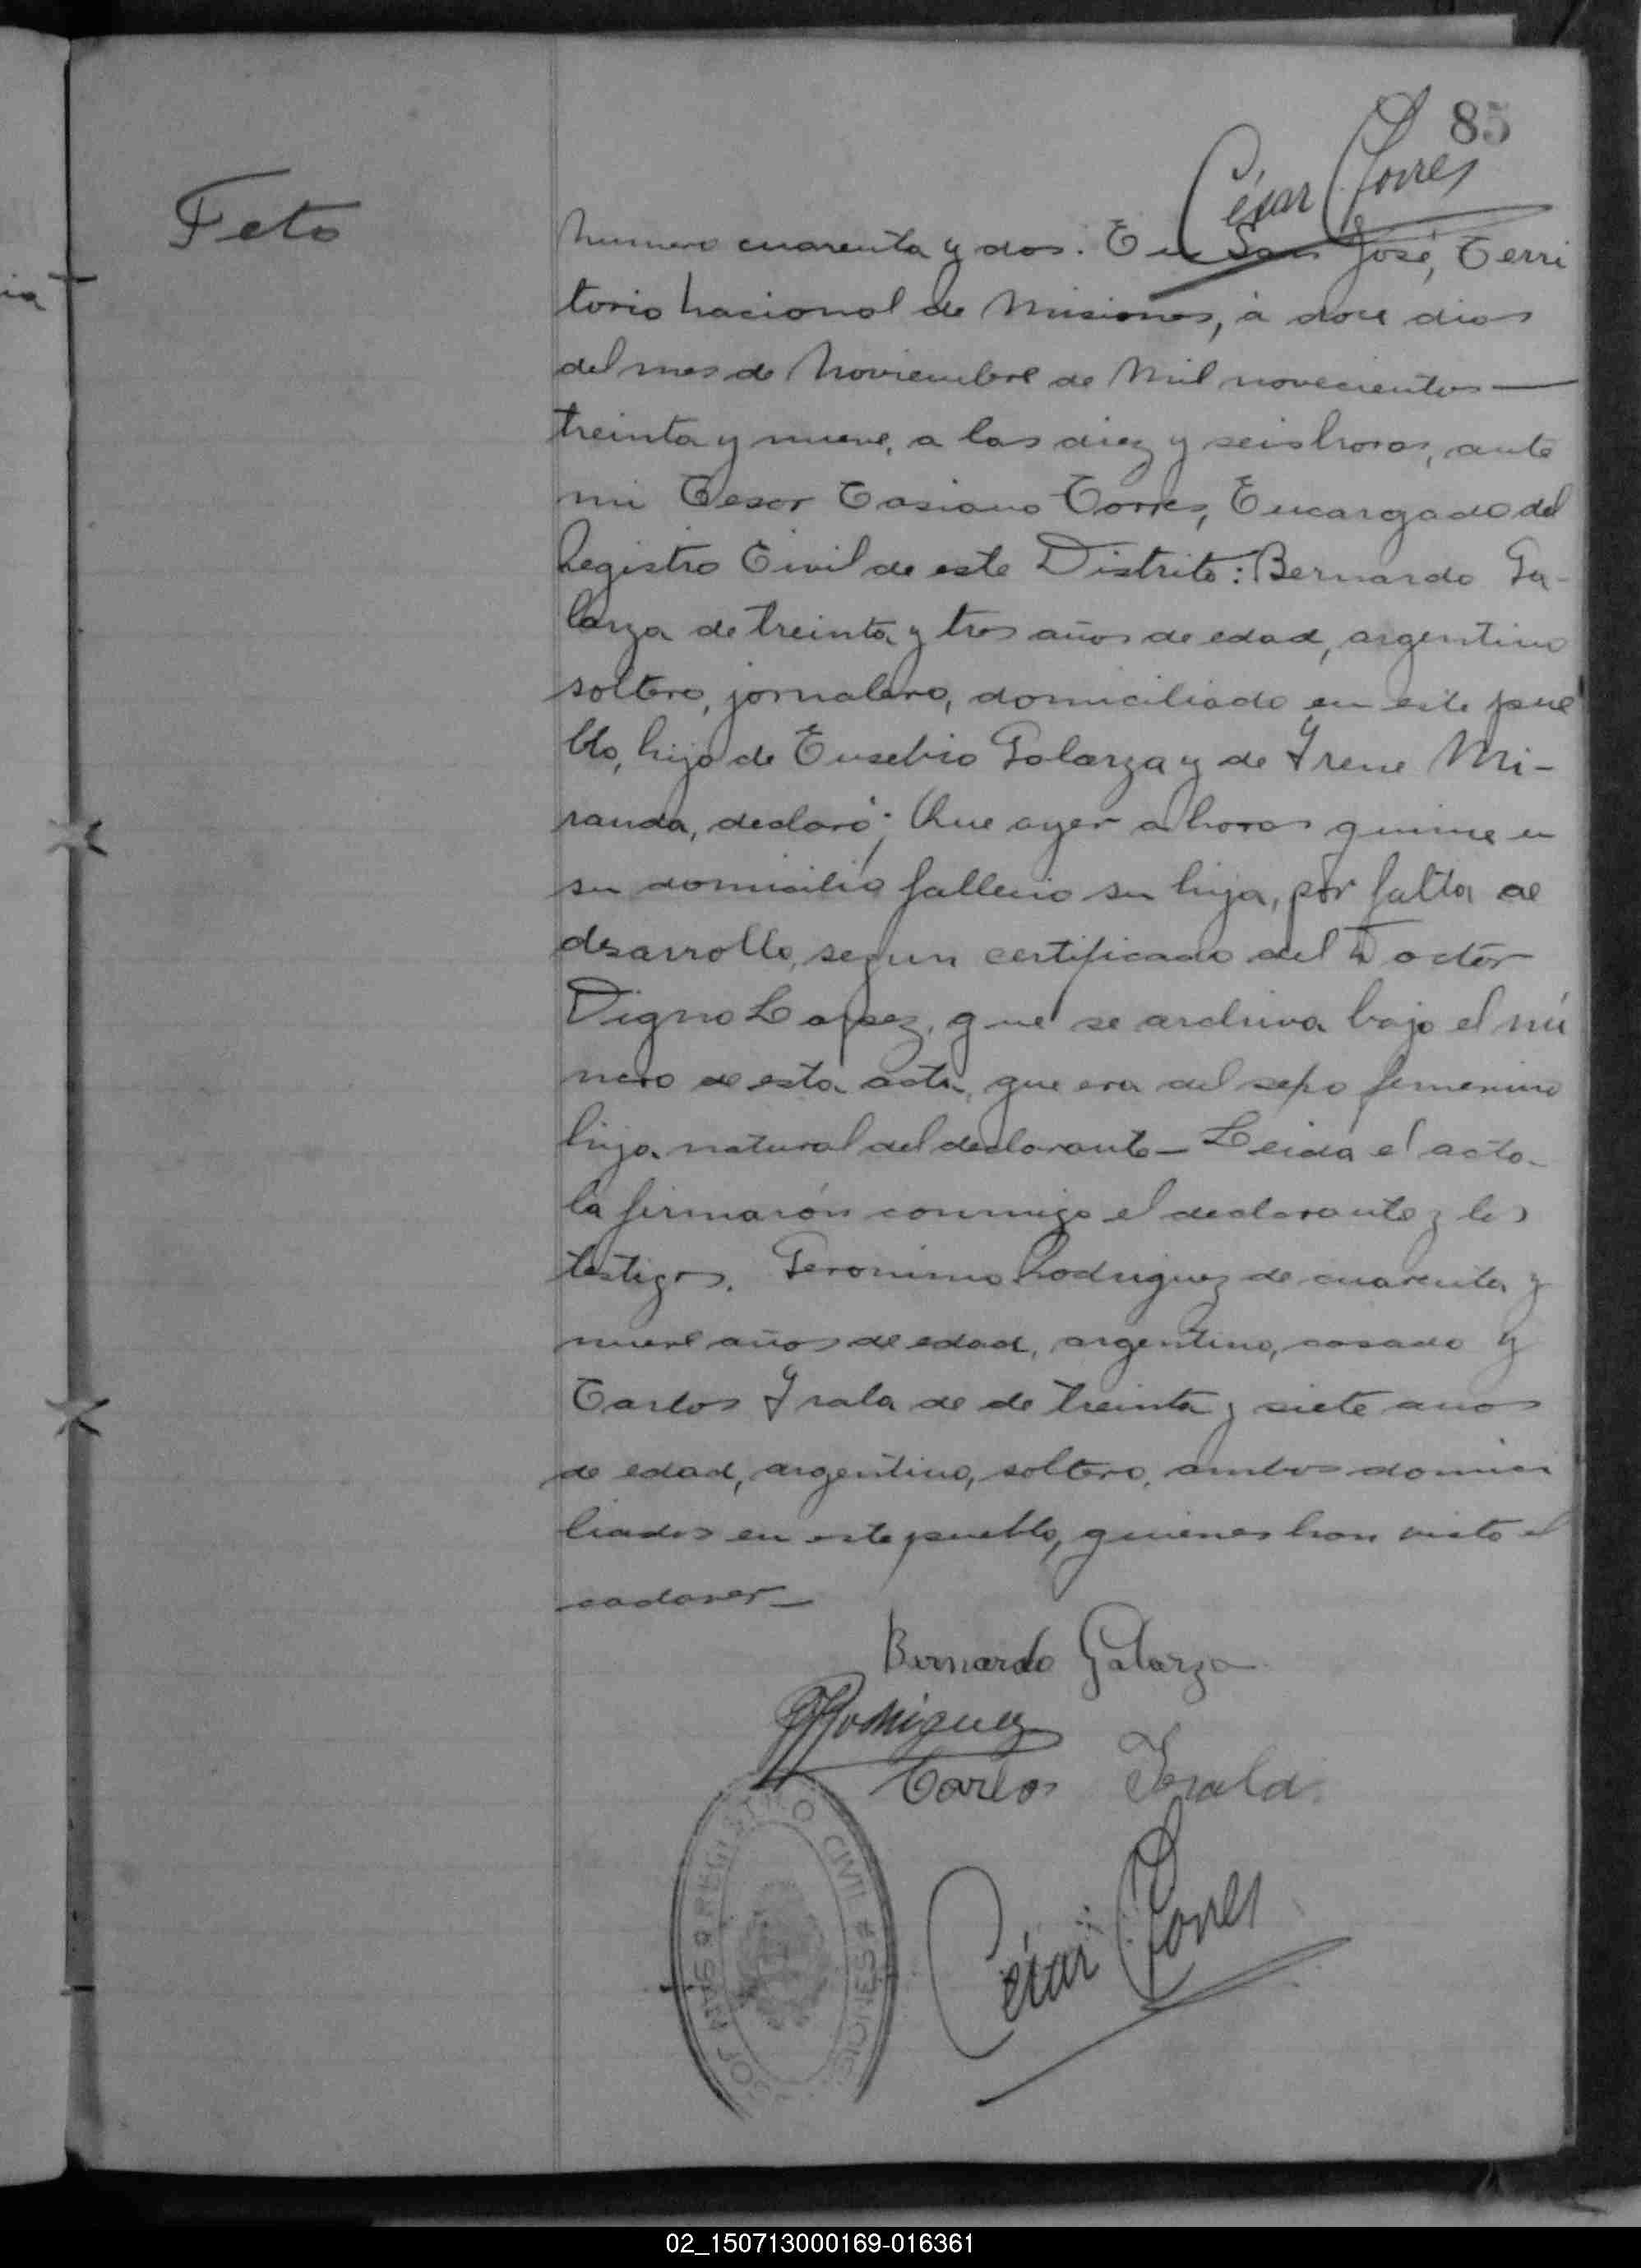 85
César Torres
Feto
Numero cuarenta y dos. En San José, Terri
torio nacional de Misiones, á doce dias
del mes de Noviembre de Mil novecientos —
treinta y nueve, a las diez y seis horas, ante
mi Cesar Casiano Torres, Encargado del
Registro Civil de este Distrito: Bernardo Ga-
larza de treinta y tres años de edad, argentino
soltero, jornalero, domiciliado en este pue
blo, hijo de Eusebio Galarza y de Yrene Mi-
randa, declaró; Que ayer a horas quince en
su domicilio fallecio su hija, por falta de
desarrollo, segun certificado del Doctor
Digno Lopez, que se archiva bajo el nú
mero de esta acta, que era del sexo femenino
hija natural del declarante — Leida el acta
la firmarón conmigo el declarante y los
testigos. Geronimo Rodriguez de cuarenta y
nueve años de edad, argentino, casado y
Carlos Yrala de de treinta y siete años
de edad, argentino, soltero, ambos domici
liados en este pueblo, quienes han visto el
cadaver —
Bernardo Galarza
GRodriguez
Carlos Yrala
REGISTRO CIVIL
SAN JOSÉ MISIONES
César Torres
02_150713000169-016361